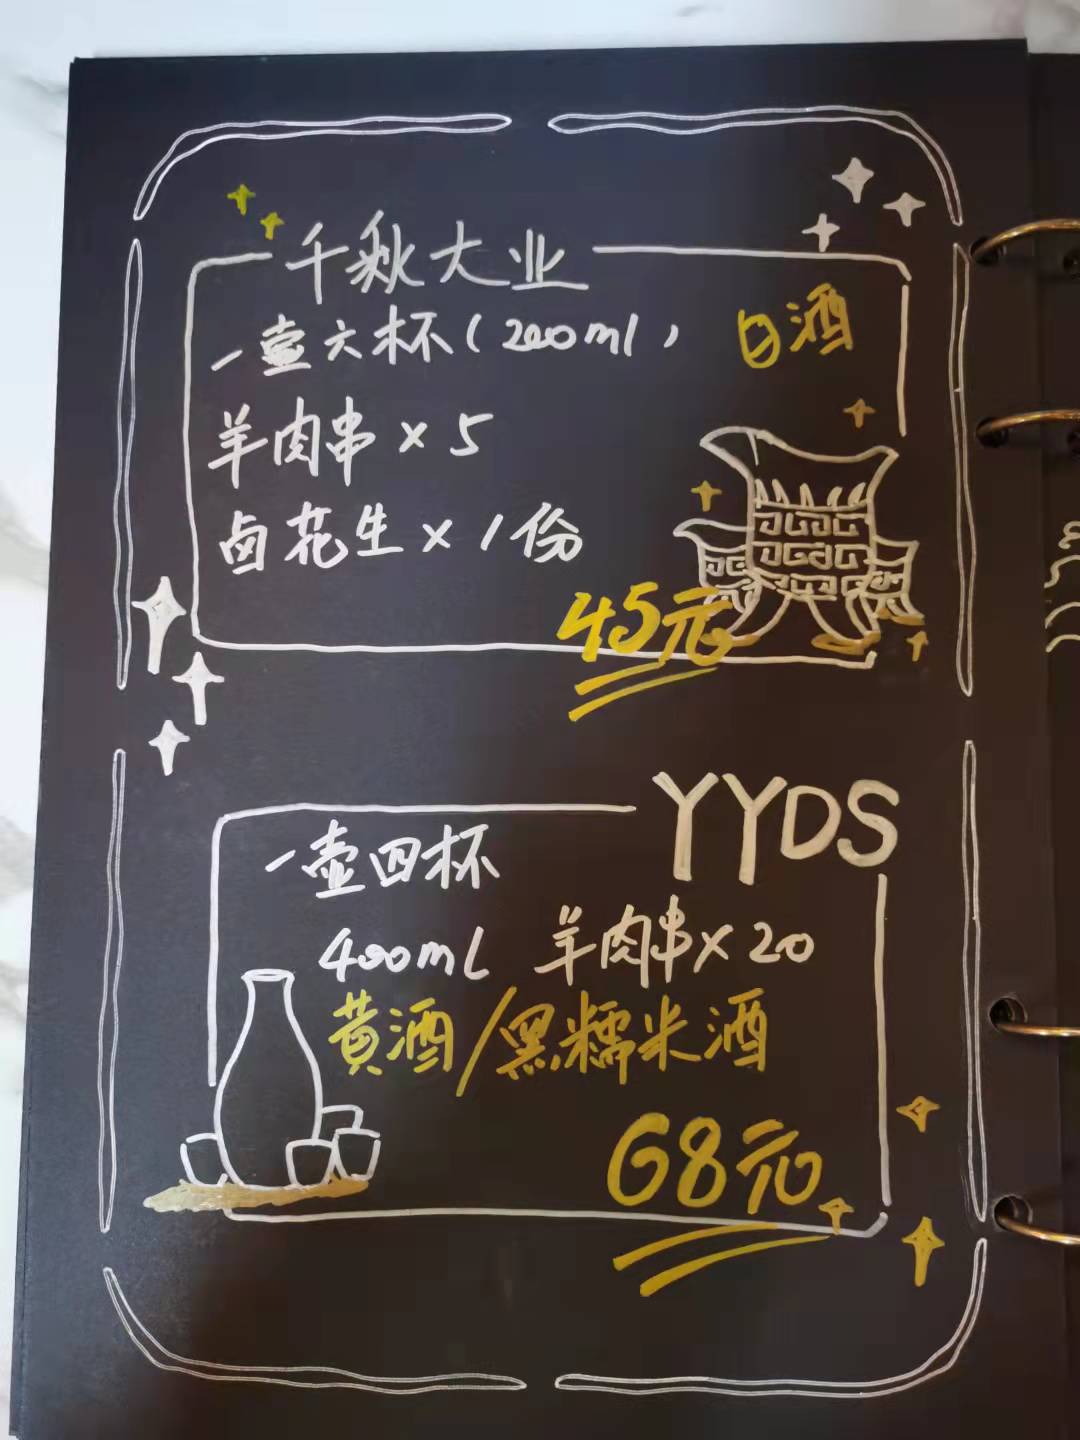 千秋大业
一壶六杯(200ml) 白酒
羊肉串×5
卤花生×1份
45元
YYDS
一壶四杯
400ml 羊肉串×20
黄酒/黑糯米酒
68元